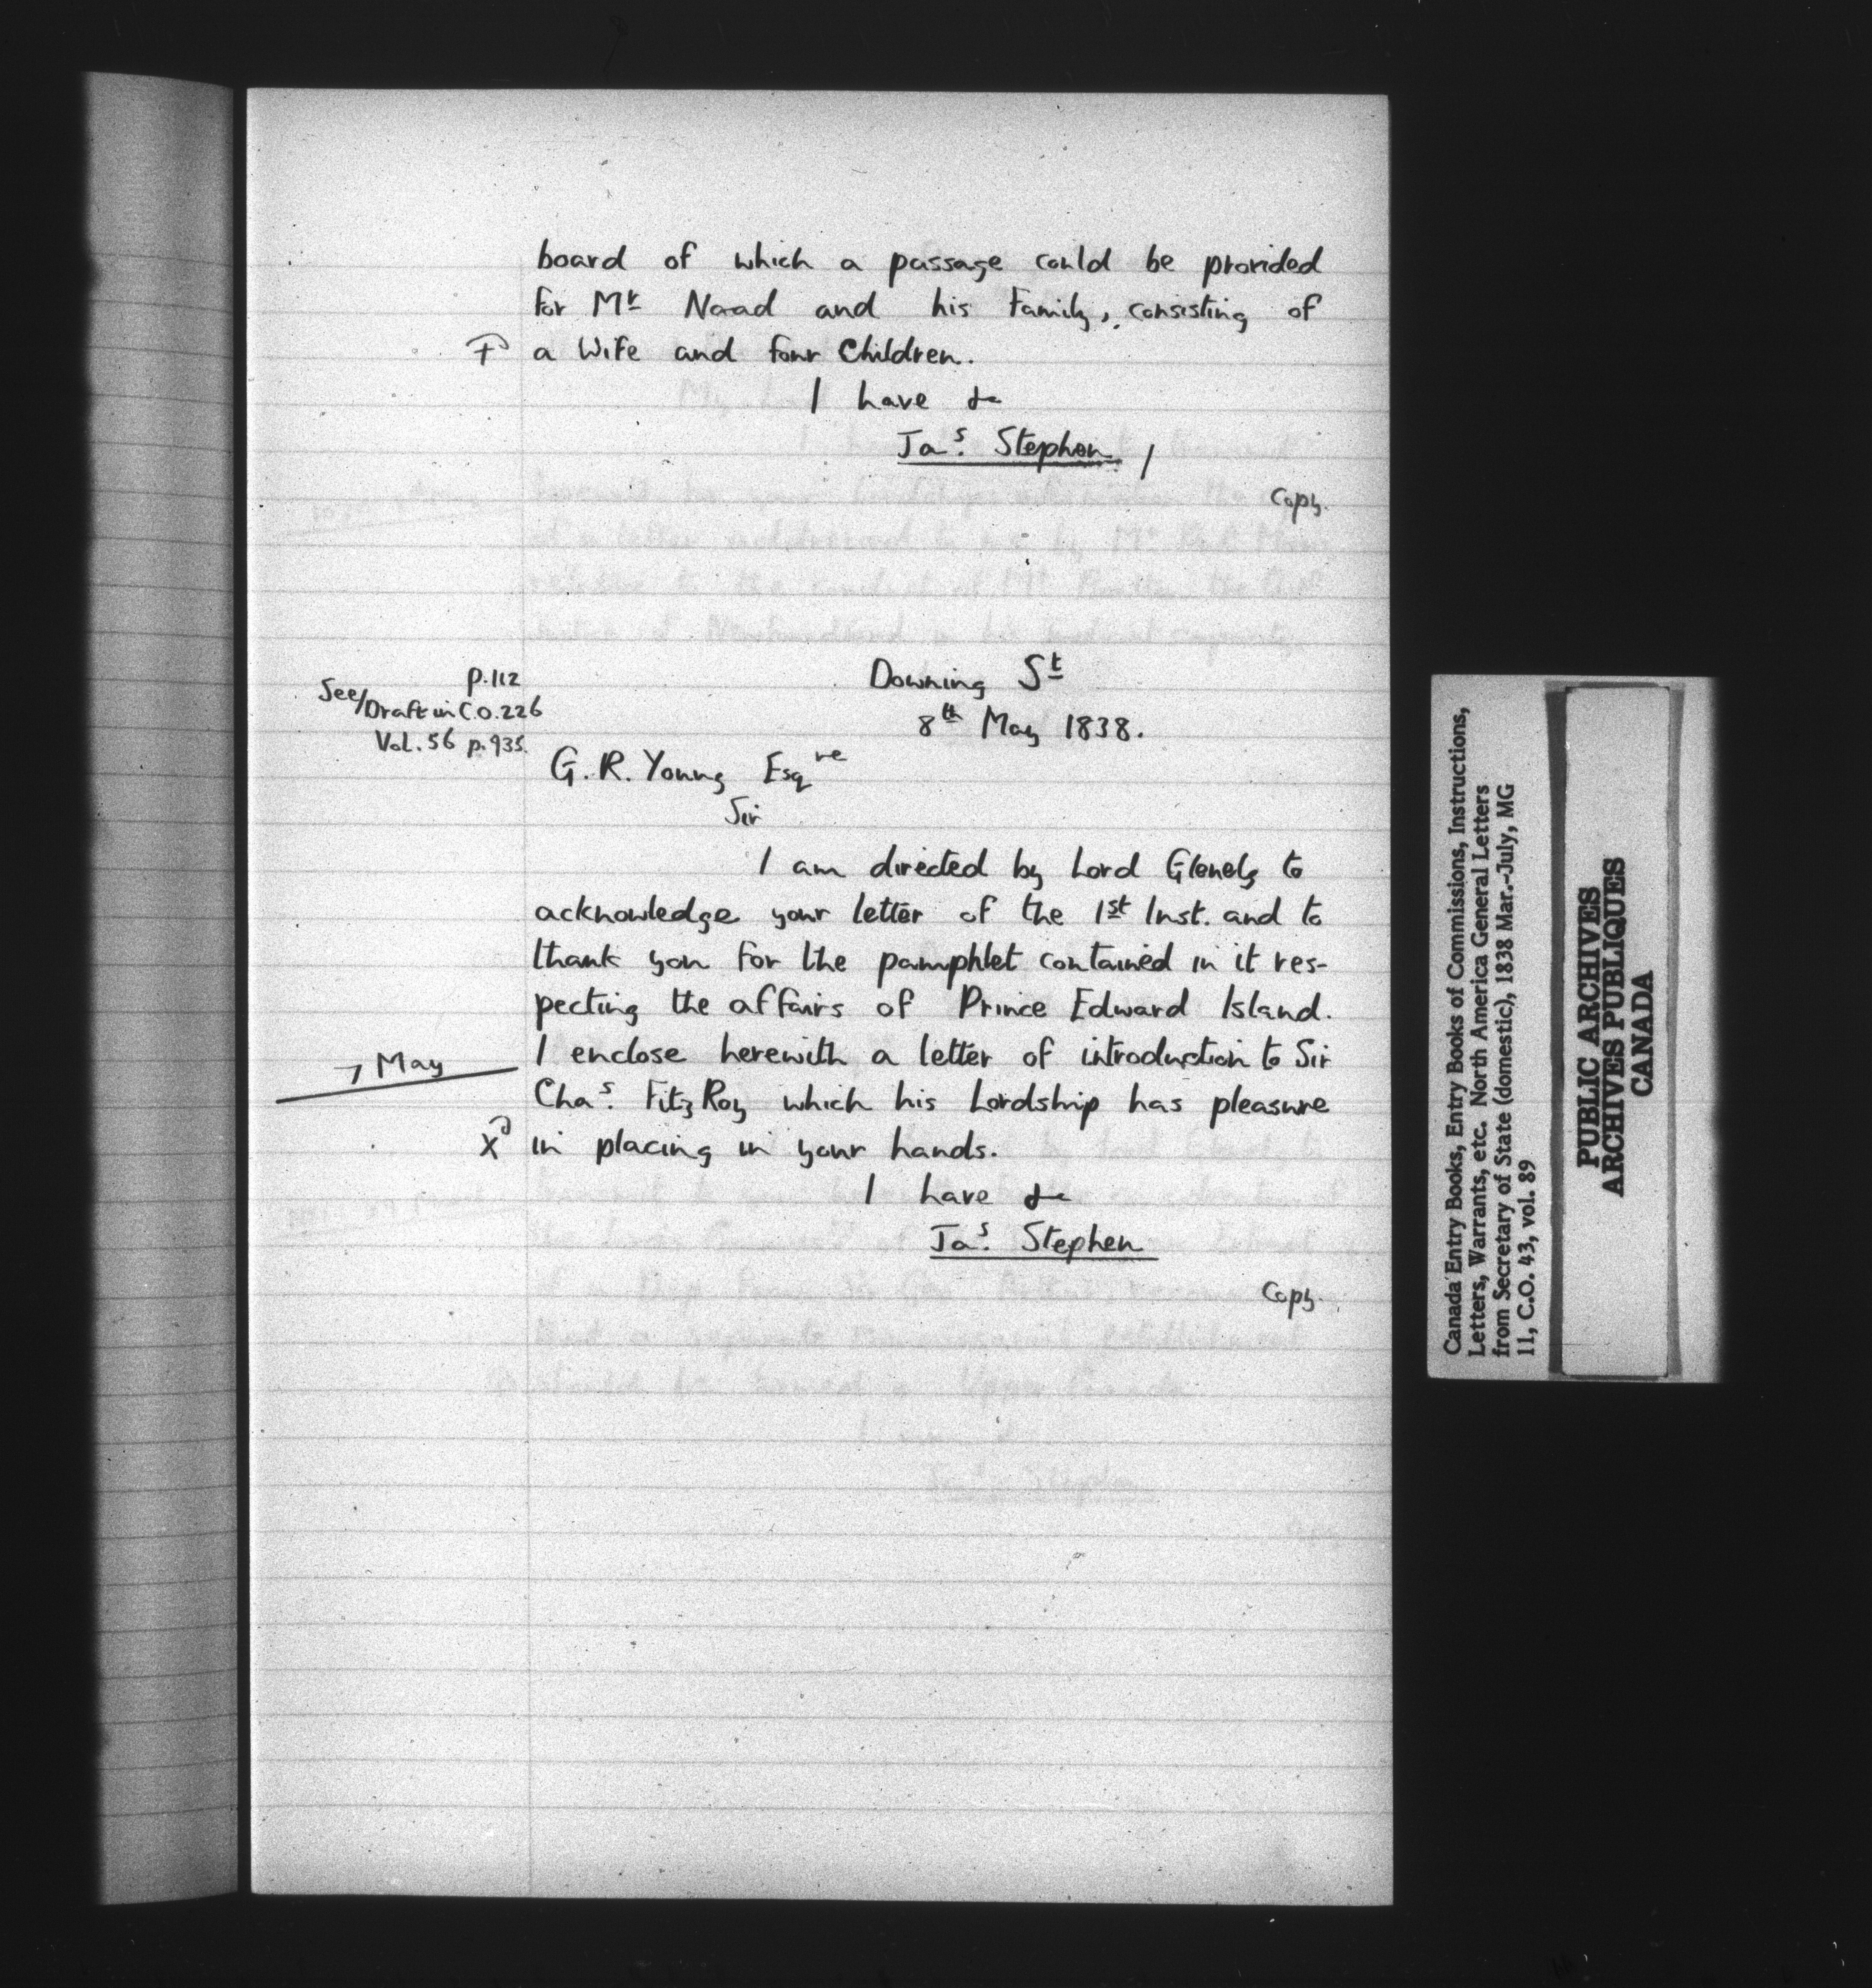 board of which a passage could be provided
for Mr Naad and his Family, consisting of
a Wife and four Children.
I have &c
Jas. Stephen /
Copy.
p.112
See/Draft in C.O.226
Vol. 56 p.935.
Downing St
8th May 1838.
G. R. Young Esqre
Sir
I am directed by Lord Glenelg to
acknowledge your letter of the 1st Inst. and to
thank you for the pamphlet contained in it res-
pecting the affairs of Prince Edward Island.
7 May
I enclose herewith a letter of introduction to Sir
Chas. FitzRoy which his Lordship has pleasure
X in placing in your hands.
I have &c
Jas. Stephen
Copy.
Canada Entry Books, Entry Books of Commissions, Instructions,
Letters, Warrants, etc. North America General Letters
from Secretary of State (domestic), 1838 Mar.-July, MG
11, C.O. 43, vol. 89
PUBLIC ARCHIVES
ARCHIVES PUBLIQUES
CANADA